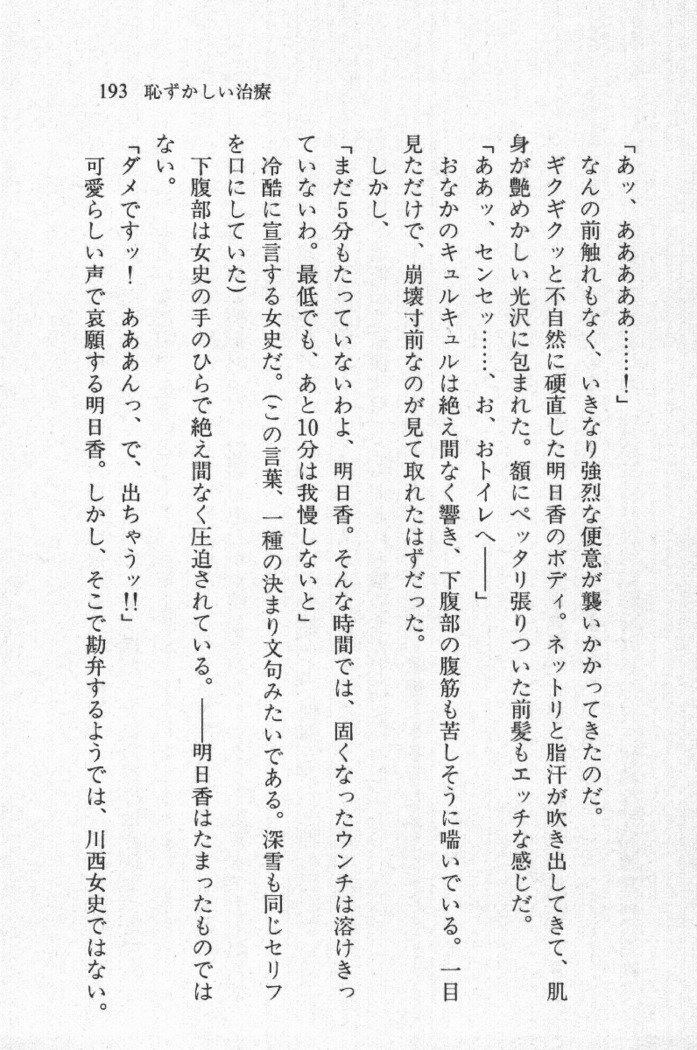 193 恥ずかしい治療
「あッ、ああああ……！」
なんの前触れもなく、いきなり強烈な便意が襲いかかってきたのだ。
ギクギクッと不自然に硬直した明日香のボディ。ネットリと脂汗が吹き出してきて、肌
身が艶めかしい光沢に包まれた。額にペッタリ張りついた前髪もエッチな感じだ。
「ああッ、センセッ……、お、おトイレへ――」
おなかのキュルキュルは絶え間なく響き、下腹部の腹筋も苦しそうに喘いでいる。一目
見ただけで、崩壊寸前なのが見て取れたはずだった。
しかし、
「まだ5分もたっていないわよ、明日香。そんな時間では、固くなったウンチは溶けきっ
ていないわ。最低でも、あと10分は我慢しないと」
冷酷に宣言する女史だ。（この言葉、一種の決まり文句みたいである。深雪も同じセリフ
を口にしていた）
下腹部は女史の手のひらで絶え間なく圧迫されている。――明日香はたまったものでは
ない。
「ダメですッ！　あああんっ、で、出ちゃうッ!!」
可愛らしい声で哀願する明日香。しかし、そこで勘弁するようでは、川西女史ではない。